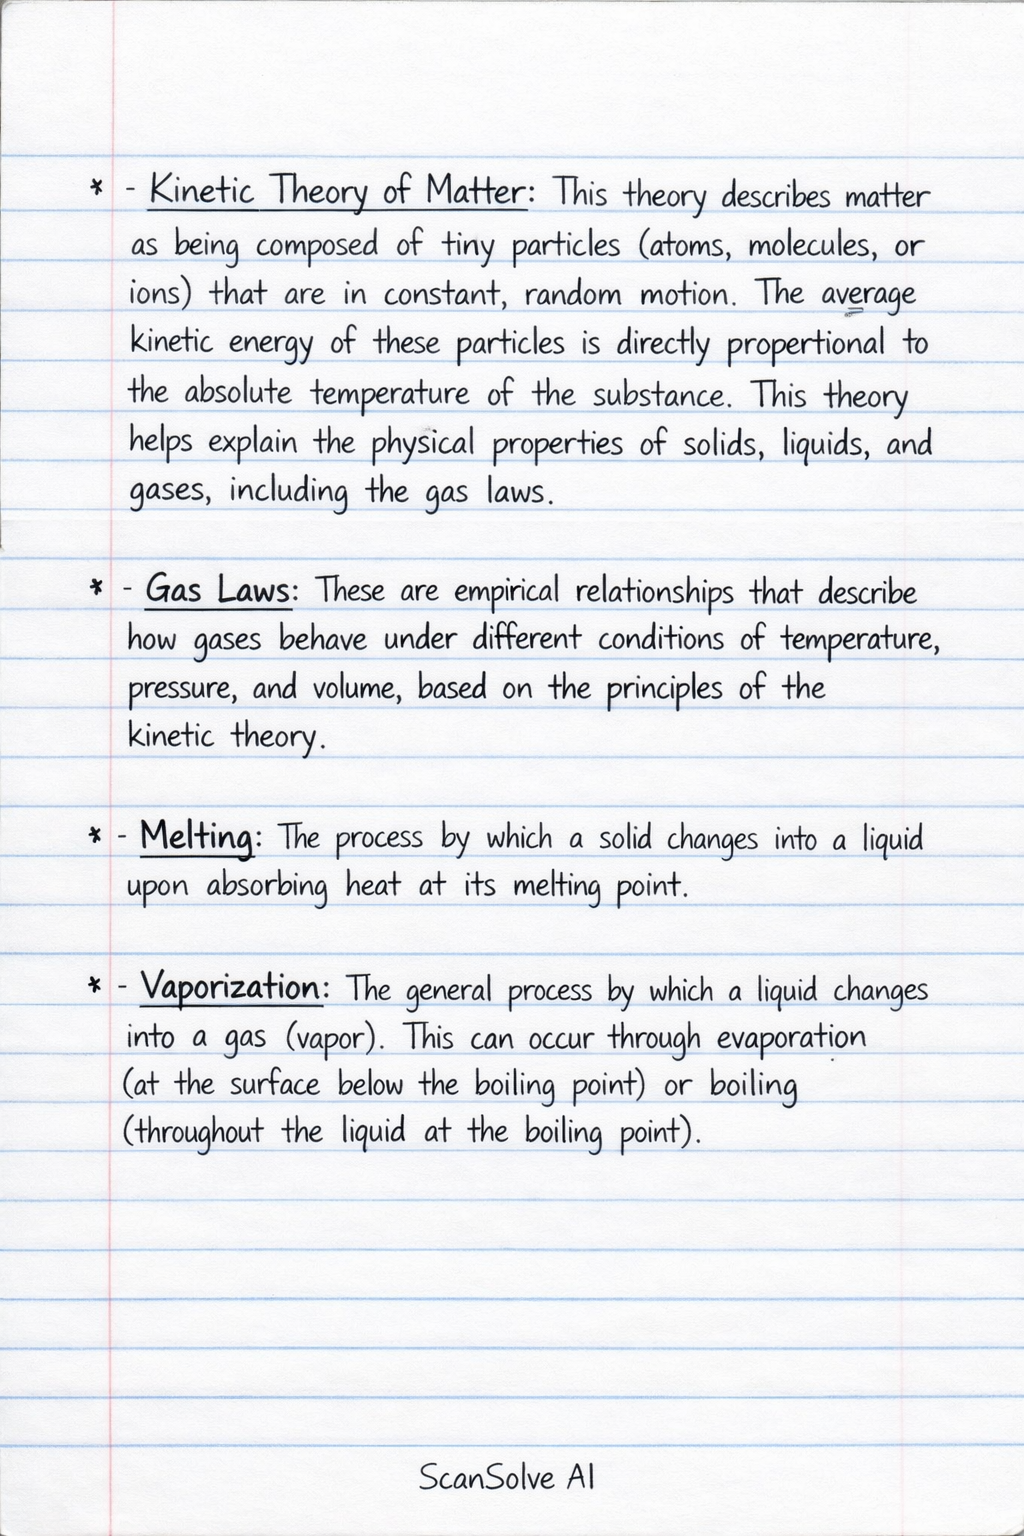 * - Kinetic Theory of Matter: This theory describes matter
as being composed of tiny particles (atoms, molecules, or
ions) that are in constant, random motion. The average
kinetic energy of these particles is directly propertional to
the absolute temperature of the substance. This theory
helps explain the physical properties of solids, liquids, and
gases, including the gas laws.
* - Gas Laws: These are empirical relationships that describe
how gases behave under different conditions of temperature,
pressure, and volume, based on the principles of the
kinetic theory.
* - Melting: The process by which a solid changes into a liquid
upon absorbing heat at its melting point.
* - Vaporization: The general process by which a liquid changes
into a gas (vapor). This can occur through evaporation
(at the surface below the boiling point) or boiling
(throughout the liquid at the boiling point).
ScanSolve AI